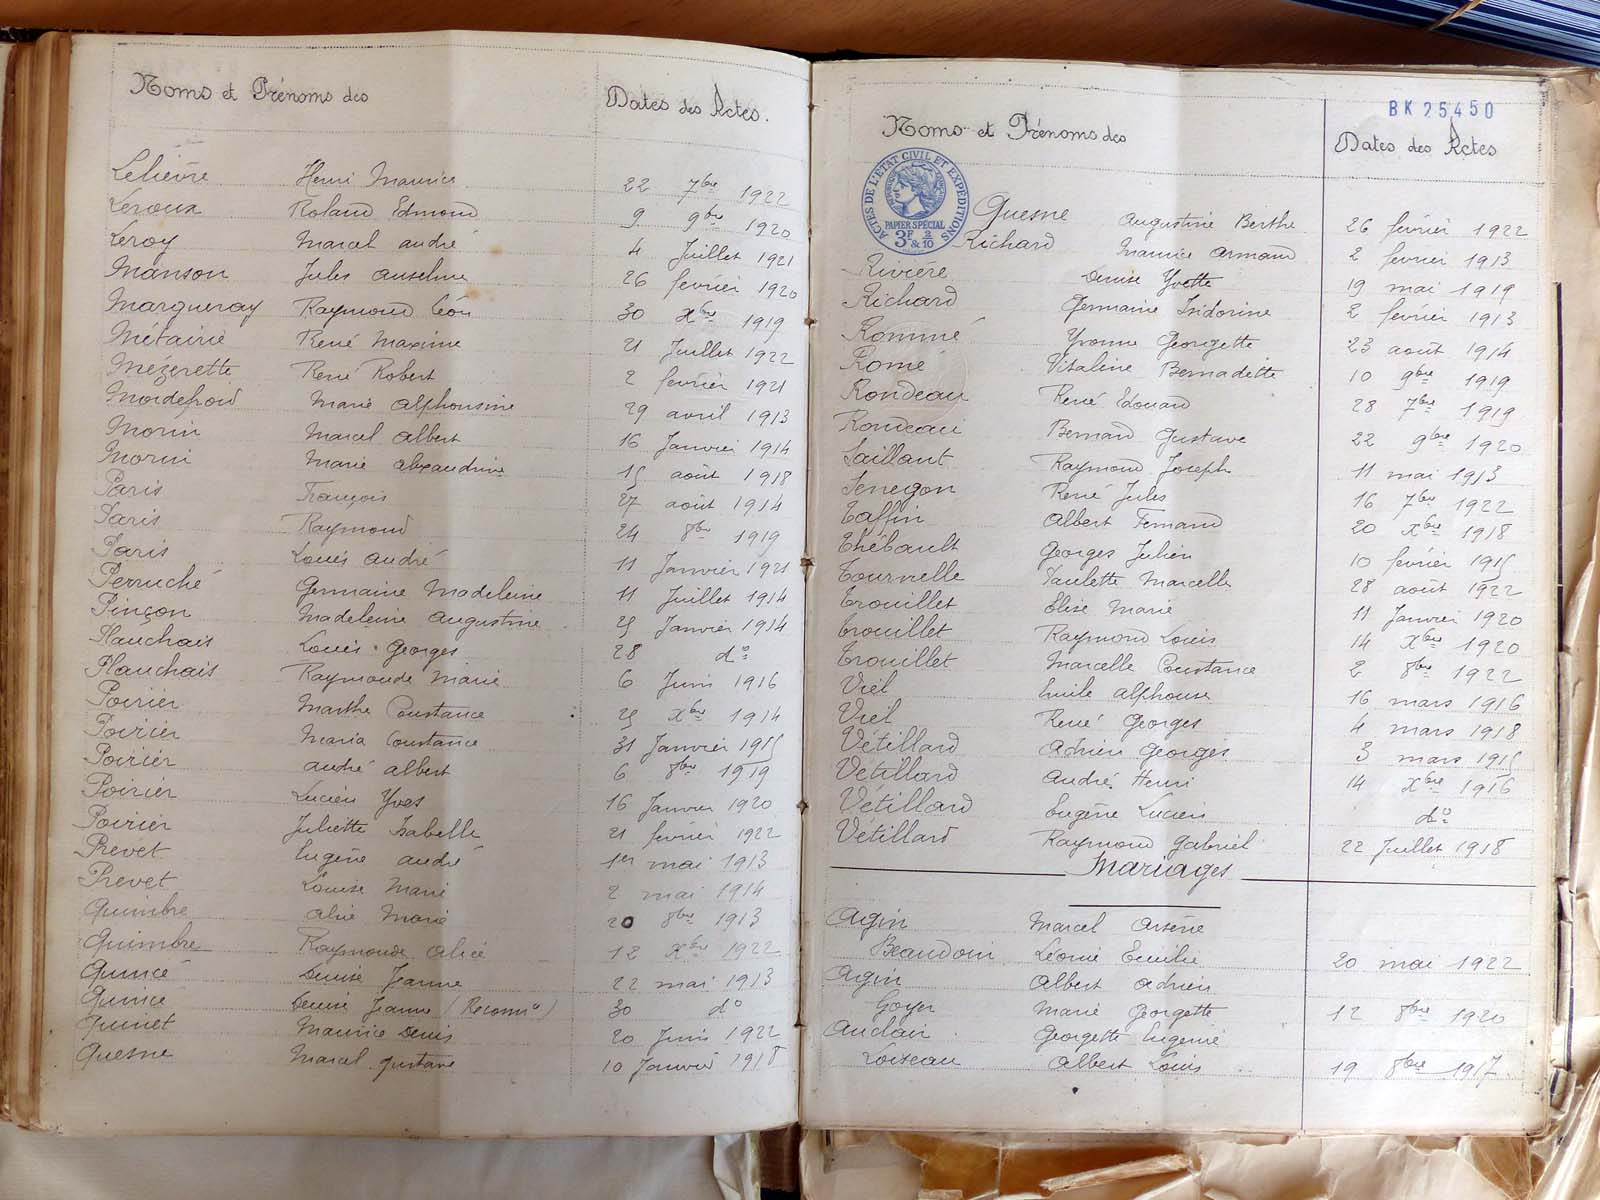 Noms et Prénoms des Dates des Actes.
Lelièvre Henri Maurice 22 7bre 1922
Leroux Roland Edmond 9 9bre 1920
Leroy Marcel André 4 Juillet 1921
Manson Jules Anselme 26 février 1920
Margueray Raymond Léon 30 Xbre 1919
Métairie René Maxime 21 Juillet 1922
Mézerette René Robert 2 février 1921
Mordefroid Marie Alphonsine 29 avril 1913
Morin Marcel Albert 16 Janvier 1914
Morin Marie Alexandrine 15 août 1918
Paris François 27 août 1914
Paris Raymond 24 8bre 1919
Paris Louis André 11 Janvier 1921
Perruché Germaine Madeleine 11 Juillet 1914
Pinçon Madeleine Augustine 25 Janvier 1914
Plauchais Louis Georges 28 do
Plauchais Raymonde Marie 6 Juin 1916
Poirier Marthe Constance 25 Xbre 1914
Poirier Maria Constance 31 Janvier 1915
Poirier André Albert 6 8bre 1919
Poirier Lucien Yves 16 Janvier 1920
Poirier Juliette Isabelle 21 février 1922
Prevet Eugène André 1er mai 1913
Prevet Louise Marie 2 mai 1914
Quimbre Marie 20 8bre 1913
Quimbre Raymonde Alice 12 Xbre 1922
Quincé Denise Jeanne 22 mai 1913
Quincé Denise Jeanne (Reconn) 30 do
Quinet Maurice Denis 20 Juin 1922
Quesne Marcel Gustave 10 Janvier 1918
BK 25450
Noms et Prénoms des Dates des Actes
ACTES DE L'ÉTAT CIVIL ET EXPÉDITIONS
PAPIER SPÉCIAL
3F & 2/10
Quesne Augustine Berthe 26 février 1922
Richard Maurice Armand 2 février 1913
Rivière Denise Yvette 19 mai 1919
Richard Germaine Isidorine 2 février 1913
Rommé Yvonne Georgette 23 août 1914
Romé Vitaline Bernadette 10 9bre 1919
Rondeau René Edouard 28 7bre 1919
Rondeau Bernard Gustave 22 9bre 1920
Saillant Raymond Joseph 11 mai 1913
Senegon René Jules 16 7bre 1922
Taffin Albert Fernand 20 Xbre 1918
Thébault Georges Julien 10 février 1915
Tournelle Paulette Marcelle 28 août 1922
Trouillet Elise Marie 11 Janvier 1920
Trouillet Raymond Louis 14 Xbre 1920
Trouillet Marcelle Constance 2 8bre 1922
Viel Emile Alphonse 16 mars 1916
Viel René Georges 4 mars 1918
Vétillard Adrien Georges 3 mars 1915
Vétillard André Henri 14 Xbre 1916
Vétillard Eugène Lucien do
Vétillard Raymond Gabriel 22 Juillet 1918
Mariages
Agin Marcel Arsène
Beaudoin Léonie Emilie 20 mai 1922
Agin Albert Adrien
Goyer Marie Georgette 12 8bre 1920
Auclair Georgette Eugénie
Loizeau Albert Louis 19 8bre 1917